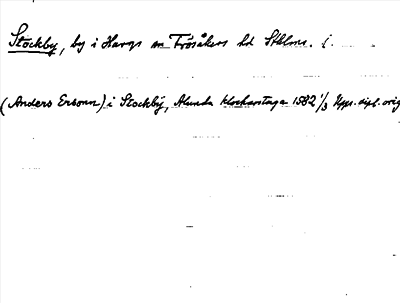 Stockby, by i Hargs sn Frösåkers hd Sthlms. l.
(Anders Ersonn) i Stockbÿ, Alunda klockarstaga 1582 1/3 Upps. dipl. orig